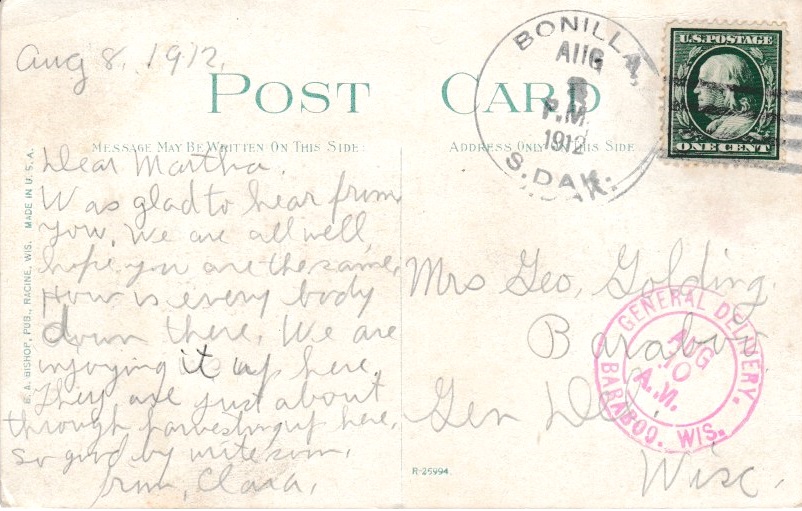 Aug 8, 1912.
POST CARD
MESSAGE MAY BE WRITTEN ON THIS SIDE:
ADDRESS ONLY ON THIS SIDE
BONILLA,
AUG
8
P.M.
1912
S. DAK.
U.S. POSTAGE
ONE CENT
Dear Martha.
Was glad to hear from
you. We are all well,
hope you are the same.
How is every body
down there. We are
injoying it up here.
They are just about
through harvesting up here,
so good by write soon,
from, Clara.
Mrs Geo, Golding.
Baraboo
Gen Del.
Wisc.
GENERAL DELIVERY.
AUG
10
A.M.
BARABOO. WIS.
E. A. BISHOP, PUB., RACINE, WIS. MADE IN U.S.A.
R-25994